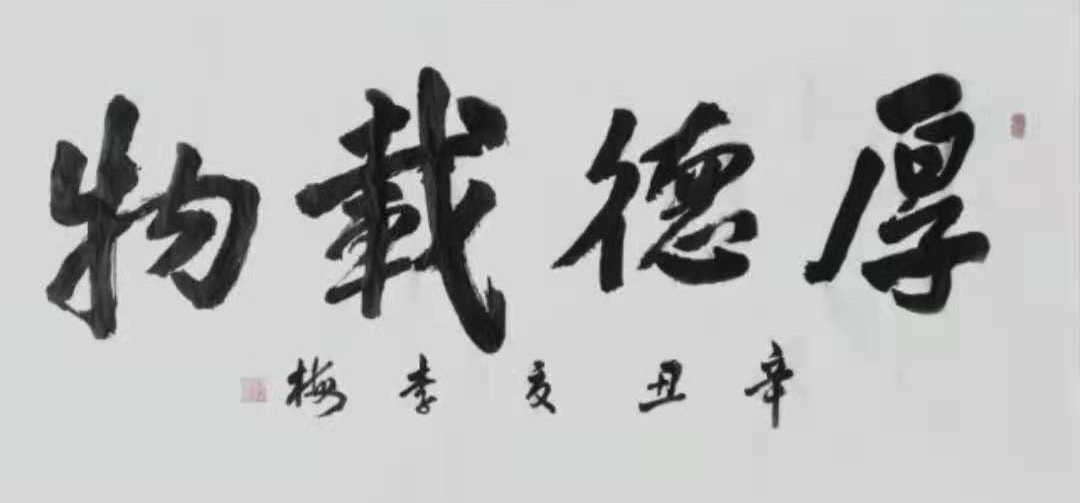 厚德載物
辛丑夏李梅